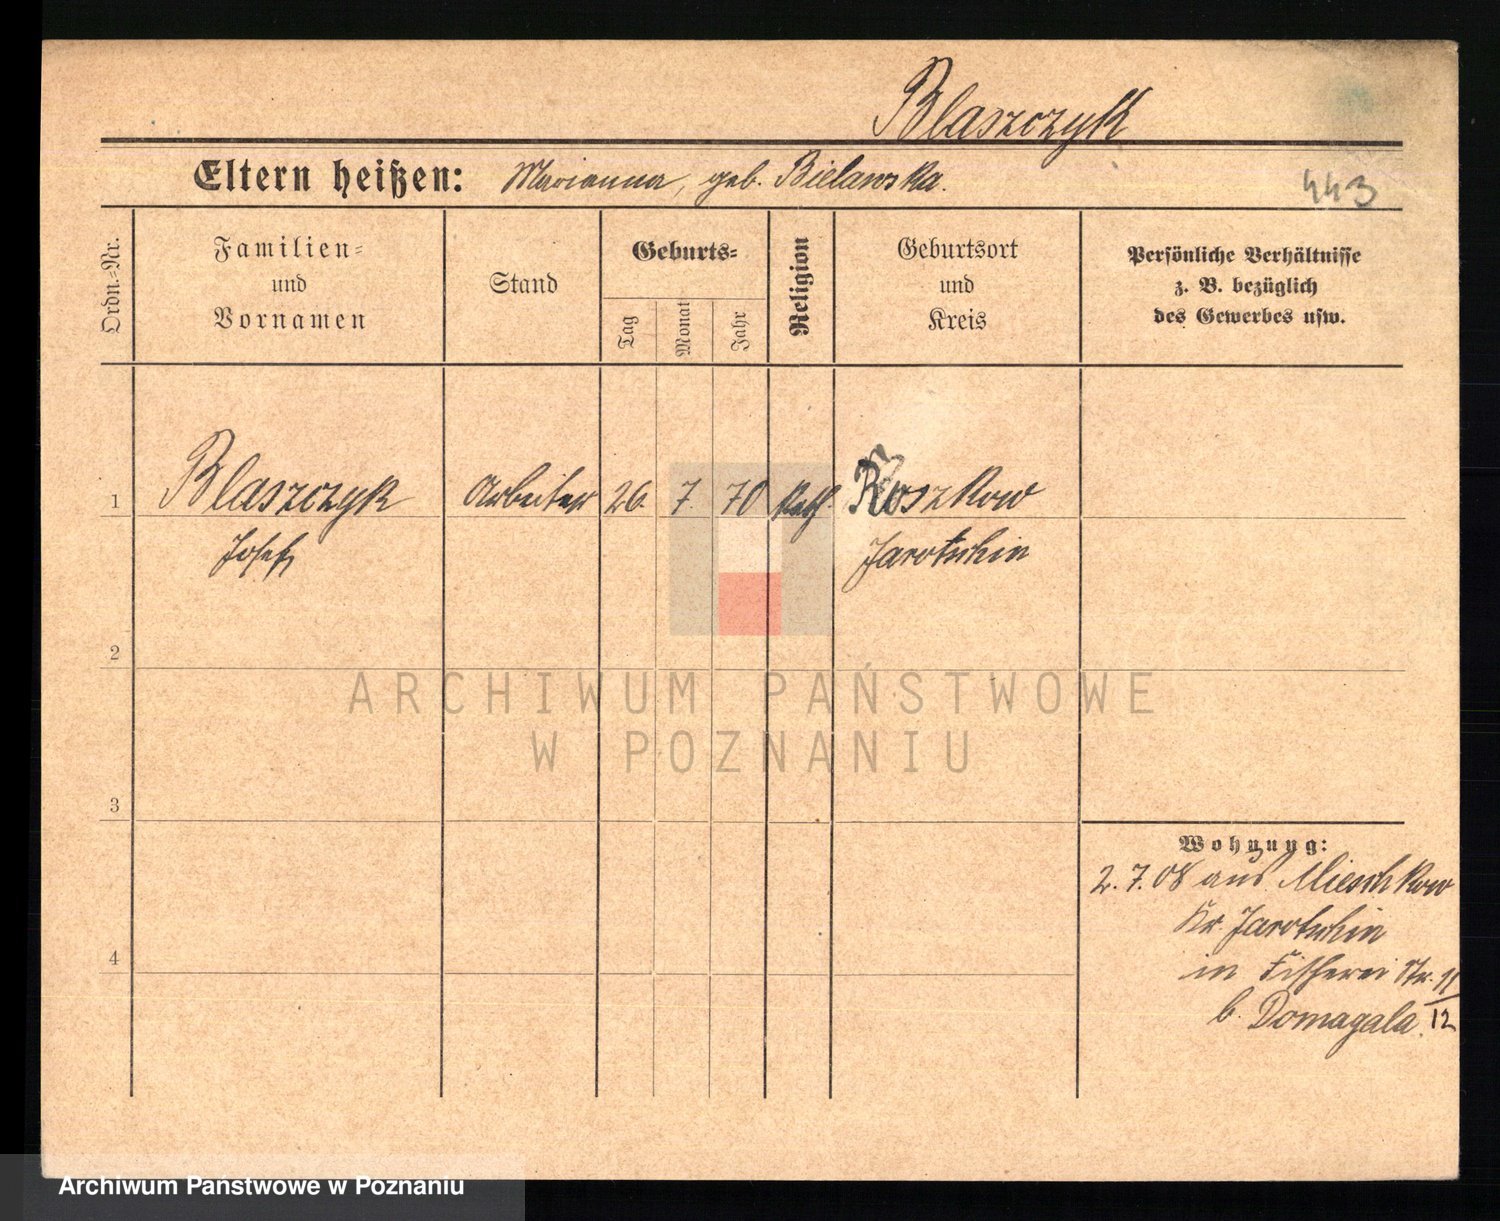 Blaszczyk
Eltern heißen: Marianna, geb. Bielawska.
443
Ordn.-Nr.
Familien-
und
Vornamen
Stand
Geburts-
Tag
Monat
Jahr
Religion
Geburtsort
und
Kreis
Persönliche Verhältnisse
z. B. bezüglich
des Gewerbes usw.
1 Blaszczyk Arbeiter 26. 7. 70 kath. Roszkow
Josef Jarotschin
2
3
4
ARCHIWUM PAŃSTWOWE
W POZNANIU
Wohnung:
2. 7. 08 aus Mieschkow
Kr. Jarotschin
in Fischerei Str. 11/12
b. Domagala.
Archiwum Państwowe w Poznaniu